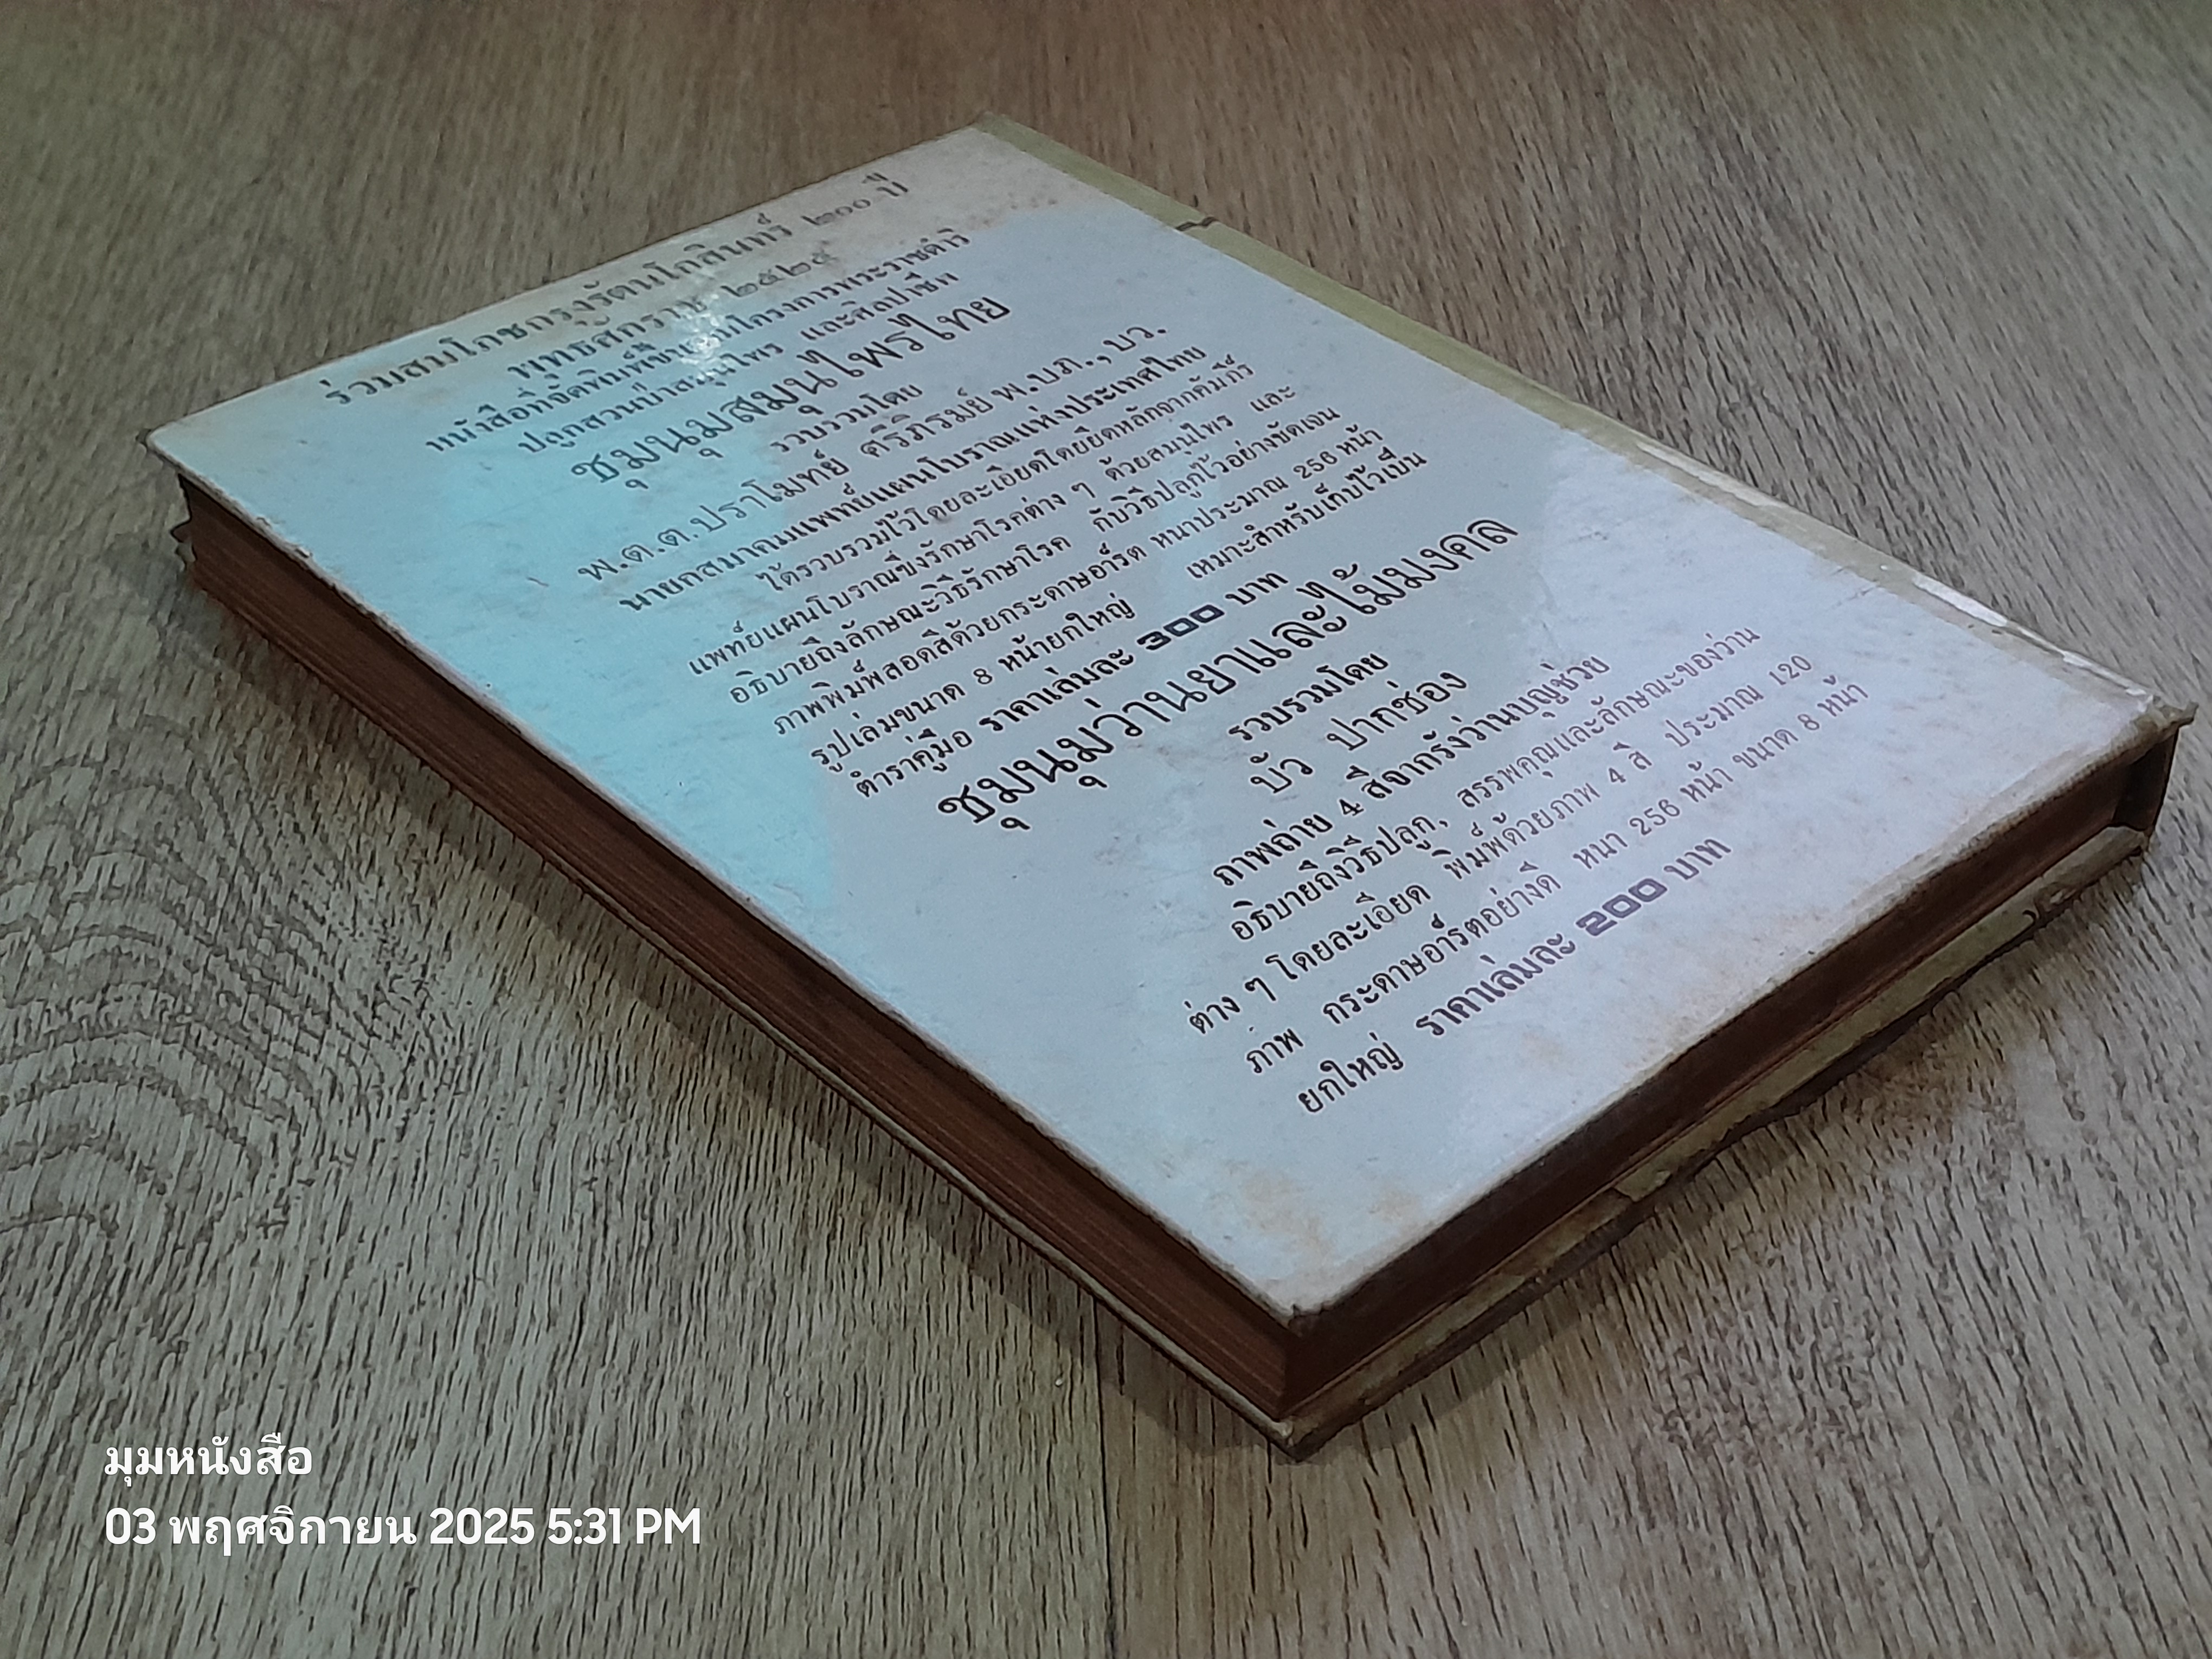 ร่วมสมโภชกรุงรัตนโกสินทร์ ๒๐๐ ปี
พุทธศักราช ๒๕๒๕
หนังสือที่จัดพิมพ์ขึ้นในโครงการพระราชดำริ
ปลูกสวนป่าสมุนไพร และศิลปาชีพ
ชุมนุมสมุนไพรไทย
รวบรวมโดย
พ.ต.ต.ปราโมทย์ ศรีภิรมย์ พ.บภ.,บว.
นายกสมาคมแพทย์แผนโบราณแห่งประเทศไทย
ได้รวบรวมไว้โดยละเอียดโดยยึดหลักจากคัมภีร์
แพทย์แผนโบราณซึ่งรักษาโรคต่าง ๆ ด้วยสมุนไพร และ
อธิบายถึงลักษณะวิธีรักษาโรค กับวิธีปลูกไว้อย่างชัดเจน
ภาพพิมพ์สอดสีด้วยกระดาษอาร์ต หนาประมาณ 256 หน้า
รูปเล่มขนาด 8 หน้ายกใหญ่ เหมาะสำหรับเก็บไว้เป็น
ตำราคู่มือ ราคาเล่มละ 300 บาท
ชุมนุมว่านยาและไม้มงคล
รวบรวมโดย
บัว ปากช่อง
ภาพถ่าย 4 สีจากรังว่านบุญช่วย
อธิบายถึงวิธีปลูก, สรรพคุณและลักษณะของว่าน
ต่าง ๆ โดยละเอียด พิมพ์ด้วยภาพ 4 สี ประมาณ 120
ภาพ กระดาษอาร์ตอย่างดี หนา 256 หน้า ขนาด 8 หน้า
ยกใหญ่ ราคาเล่มละ 200 บาท
มุมหนังสือ
03 พฤศจิกายน 2025 5:31 PM